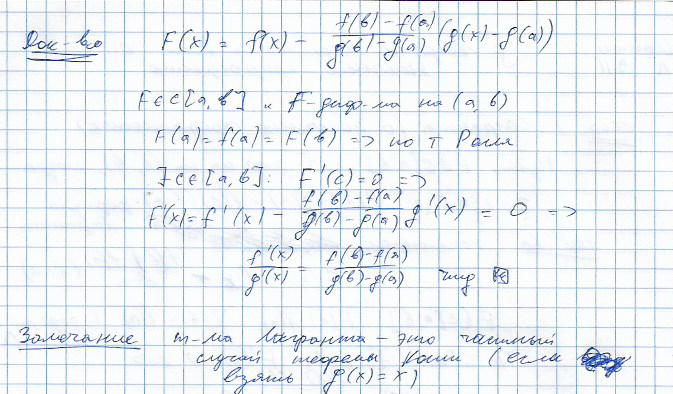 Док-во F(x) = f(x) - \frac{f(b) - f(a)}{g(b) - g(a)} (g(x) - g(a))
F ∈ C[a, b] и F - диф-ма на (a, b)
F(a) = f(a) = F(b) => по т Ролля
∃ c ∈ [a, b]: F'(c) = 0 =>
F'(x) = f'(x) - \frac{f(b) - f(a)}{g(b) - g(a)} g'(x) = 0 =>
\frac{f'(x)}{g'(x)} = \frac{f(b) - f(a)}{g(b) - g(a)} чтд
Замечание т-ма Лагранжа - это частный
случай теоремы Коши (если
взять g(x) = x)